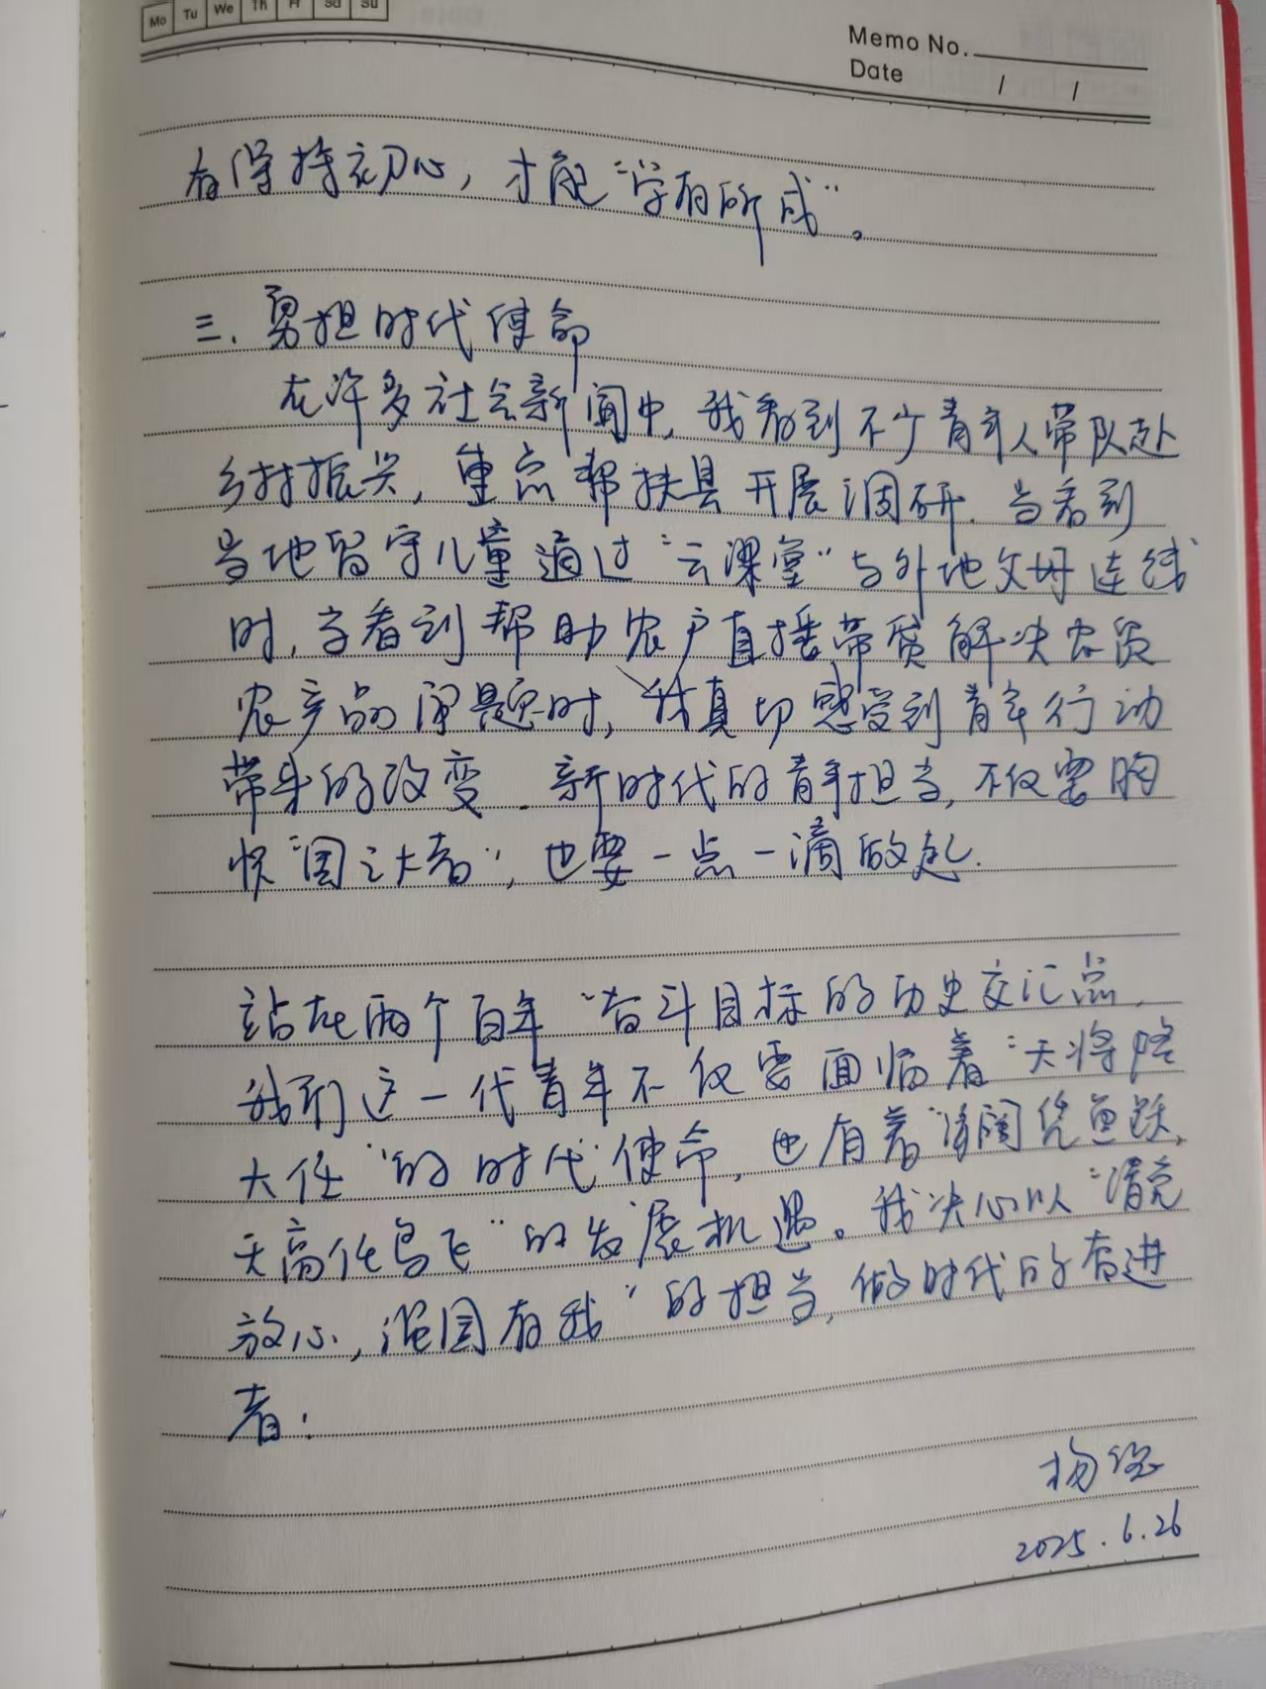 Mo Tu We Th Fr Sa Su
Memo No.
Date / /
有保持初心，才能“学有所成”。
三、勇担时代使命
在许多社会新闻中，我看到不少青年人带队赴
乡村振兴，重点帮扶县开展调研．当看到
当地留守儿童通过“云课堂”与外地父母连线
时，当看到帮助农户直播带货解决农货
农产品问题时，我真切感受到青年行动
带来的改变．新时代的青年担当，不仅要胸
怀“国之大者”，也要一点一滴做起．
站在两个百年“奋斗目标的历史交汇点，
我们这一代青年不仅要面临着“天将降
大任”的时代使命，也有着“海阔凭鱼跃，
天高任鸟飞”的发展机遇。我决心以“请党
放心，强国有我”的担当，做时代的奋进
者！
杨
2025.6.26